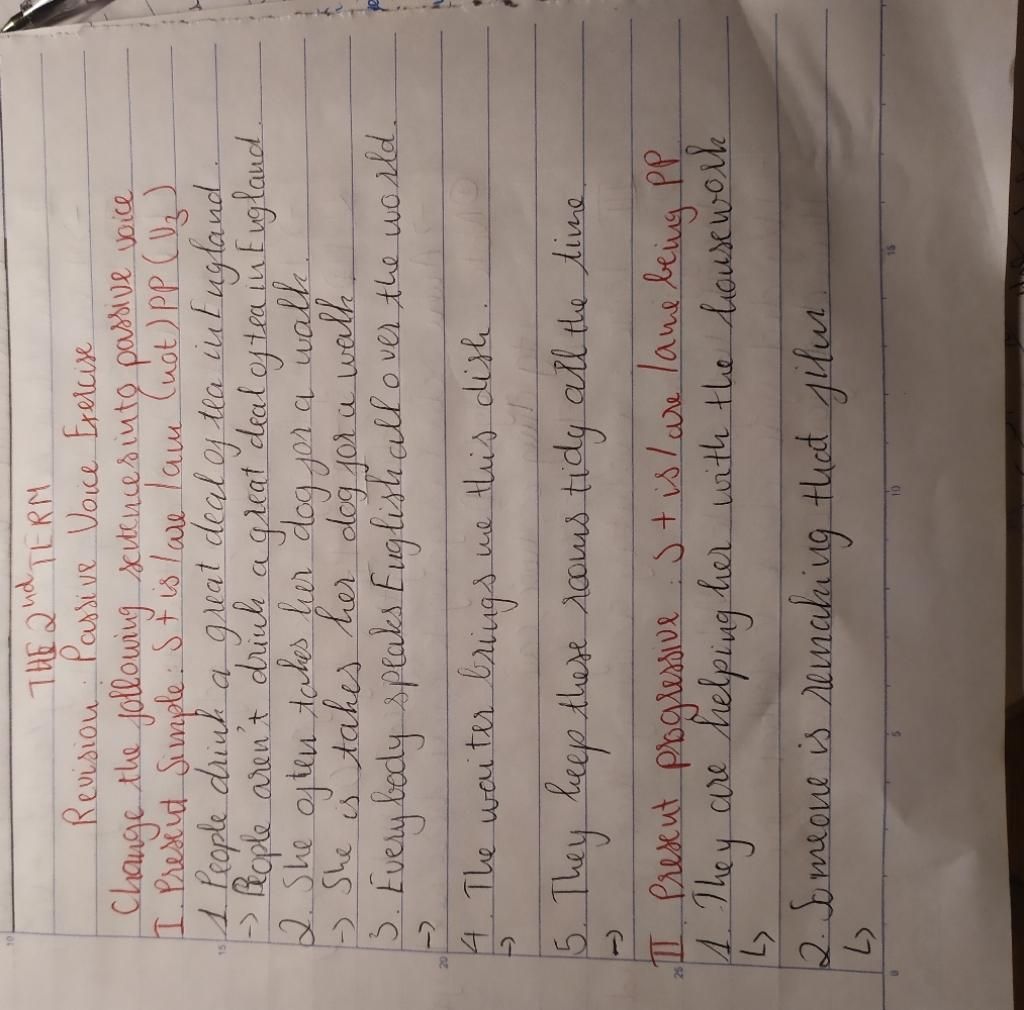 THE 2nd TERM
Revision: Passive Voice Exercise
Change the following sentences into passive voice
I. Present Simple: S + is / are / am (not) PP (V3)
1. People drink a great deal of tea in England.
-> People aren't drink a great deal of tea in England.
2. She often takes her dog for a walk.
-> She is takes her dog for a walk
3. Everybody speaks English all over the world.
->
4. The waiter brings me this dish.
->
5. They keep these rooms tidy all the time.
->
II. Present progressive: S + is / are / am being PP
1. They are helping her with the housework
↳
2. Someone is remaking that film.
↳
10
15
20
25
0
5
10
15